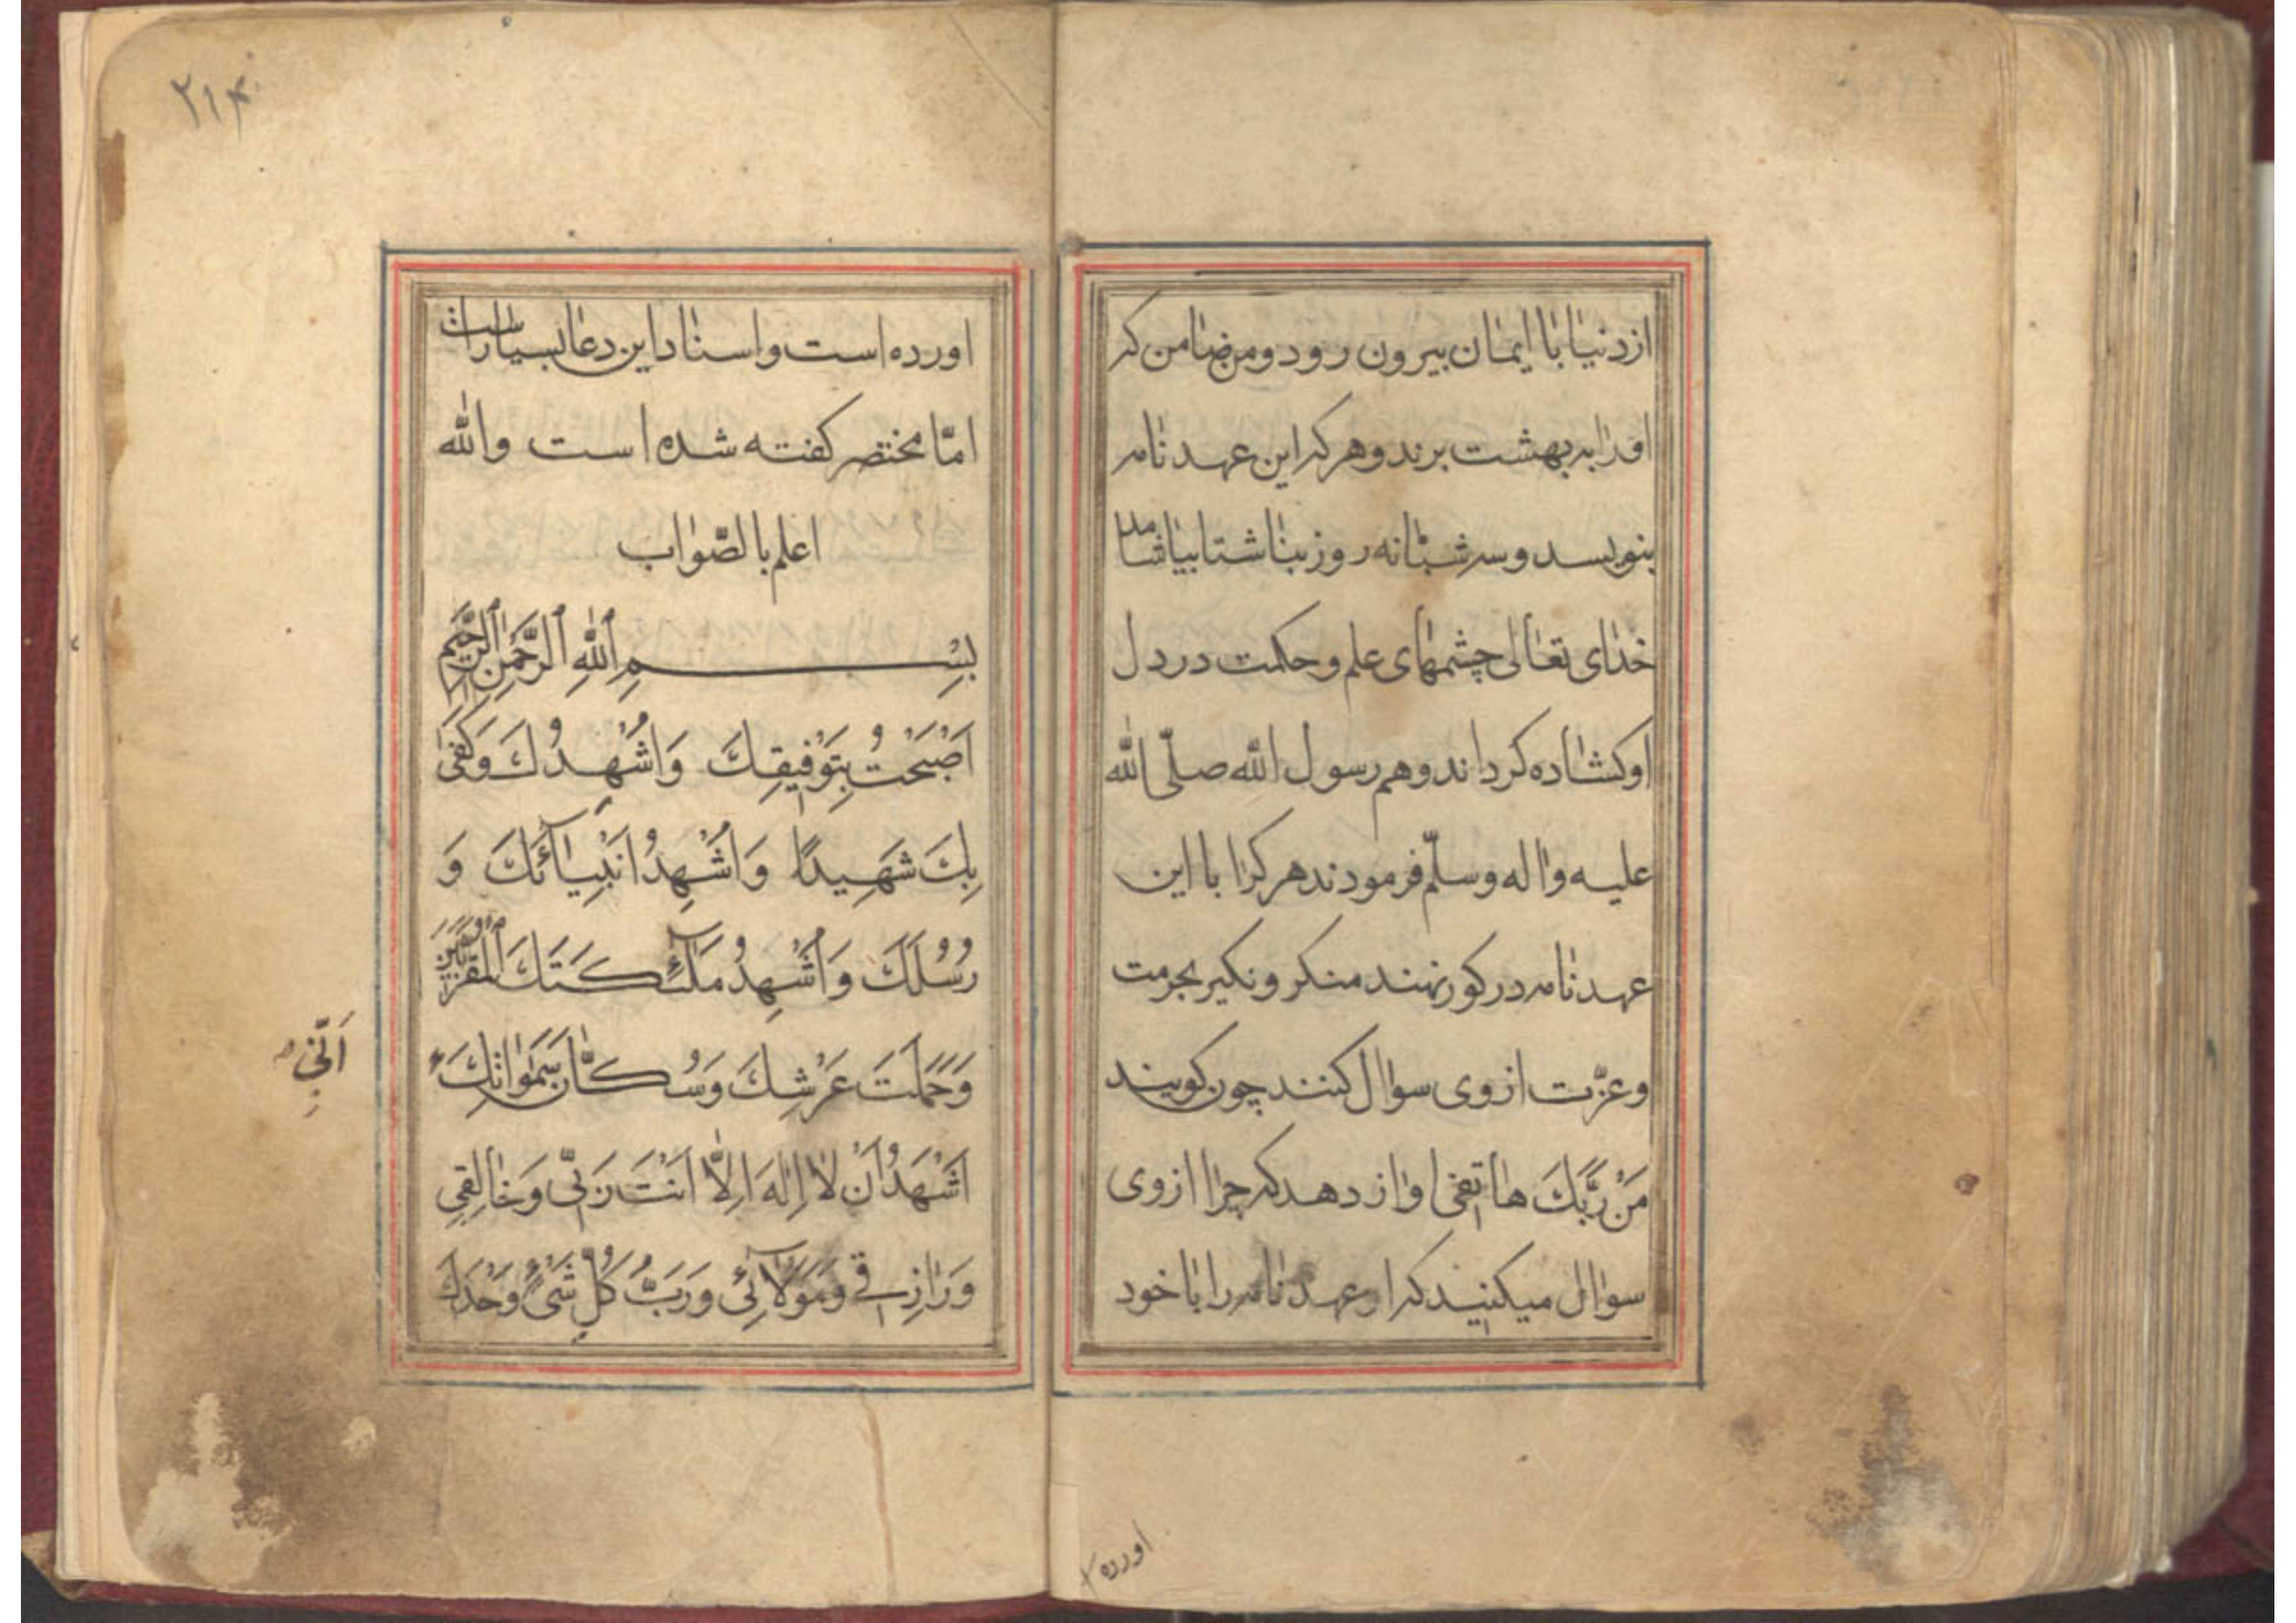 از دنیا با ایمان بیرون رود و من ضامن که
اورا به بهشت برند و هر که این عهد نامه
بنویسد و سه شبانه روز بناشتا بیاشامد
خدای تعالی چشمهای علم و حکمت در دل
او کشاده کرداند و هم رسول الله صلّی الله
علیه واله وسلّم فرمودند هر کرا با این
عهد نامه در کور نهند منکر و نکیر بحرمت
و عزّت از وی سوال کنند چون کویند
مَنْ رَبُّكَ هاتفی اواز دهد که چرا از وی
سوال میکنید که او عهد نامه را با خود
اورده
۲۱۴
اورده است و اسناد این دعا بسیار است
امّا مختصر کفته شده است والله
اعلم بالصّواب
بِسْمِ اللهِ الرَّحْمٰنِ الرَّحِيمِ
اَصْبَحْتُ بِتَوْفِيقِكَ وَاُشْهِدُكَ وَكَفٰى
بِكَ شَهِيدًا وَاُشْهِدُ اَنْبِيَآئَكَ وَ
رُسُلَكَ وَاُشْهِدُ مَلٰٓئِكَتَكَ الْمُقَرَّبِينَ
وَحَمَلَتَ عَرْشِكَ وَسُكَّانَ سَمٰوَاتِكَ
اَنِّي
اَشْهَدُ اَنْ لَا اِلٰهَ اِلَّا اَنْتَ رَبِّي وَخَالِقِي
وَرَازِقِي وَمَوْلَآئِي وَرَبُّ كُلِّ شَيْءٍ وَحْدَكَ